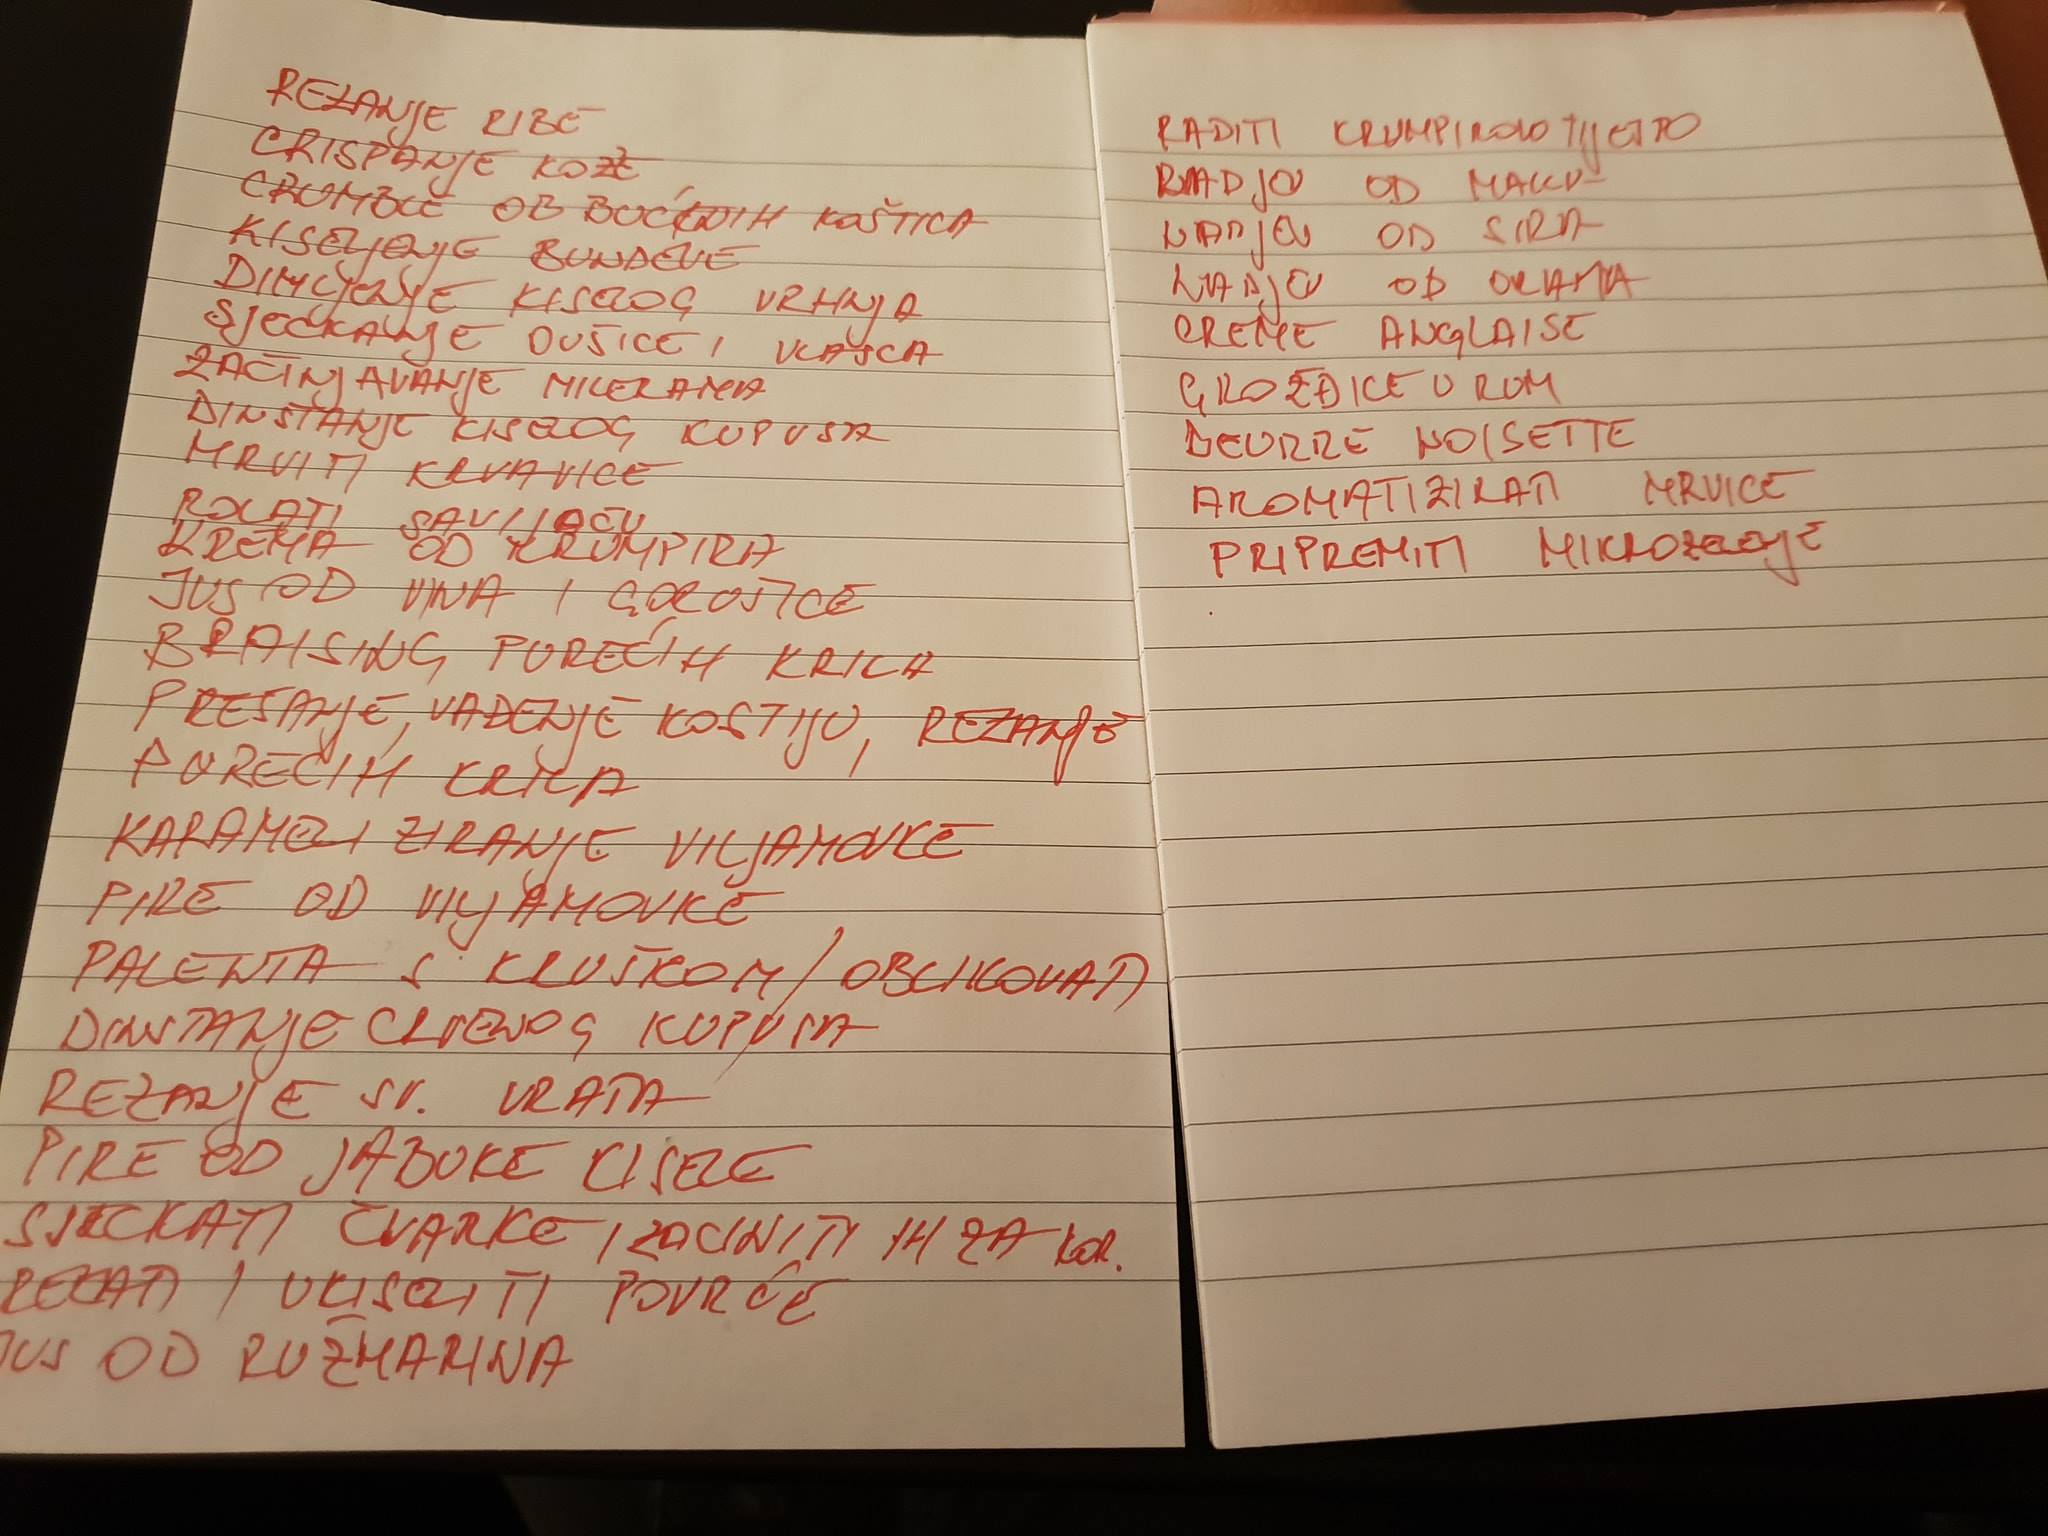 REZANJE RIBE
CRISPANJE KOŽE
CRUMBLE OD BUČINIH KOŠTICA
KISELJENJE BUNDEVE
DIMLJENJE KISELOG VRHNJA
SJECKANJE DUŠICE I VLASCA
ZAČINJAVANJE MILERAMA
DINSTANJE KISELOG KUPUSA
MRVITI KRVAVICE
ROLATI SAVIJAČU
KREMA OD KRUMPIRA
JUS OD VINA I GORUŠICE
BRAISING PUREĆIH KRILA
PRESANJE, VAĐENJE KOSTIJU, REZANJE
PUREĆIH KRILA
KARAMELIZIRANJE VILJAMOVKE
PIRE OD VILJAMOVKE
PALENTA S KRUŠKOM / OBLIKOVATI
DINSTANJE CRVENOG KUPUSA
REZANJE SV. VRATA
PIRE OD JABUKE KISELE
SJECKATI ČVARKE I ZAČINITI IH ZA KOR.
REZATI I UKISELITI POVRĆE
JUS OD RUŽMARINA
RADITI KRUMPIROVO TIJESTO
NADJEV OD MAKA
NADJEV OD SIRA
NADJEV OD ORAHA
CREME ANGLAISE
GROŽĐICE U RUM
BEURRE NOISETTE
AROMATIZIRATI MRVICE
PRIPREMITI MIKROZELENJE